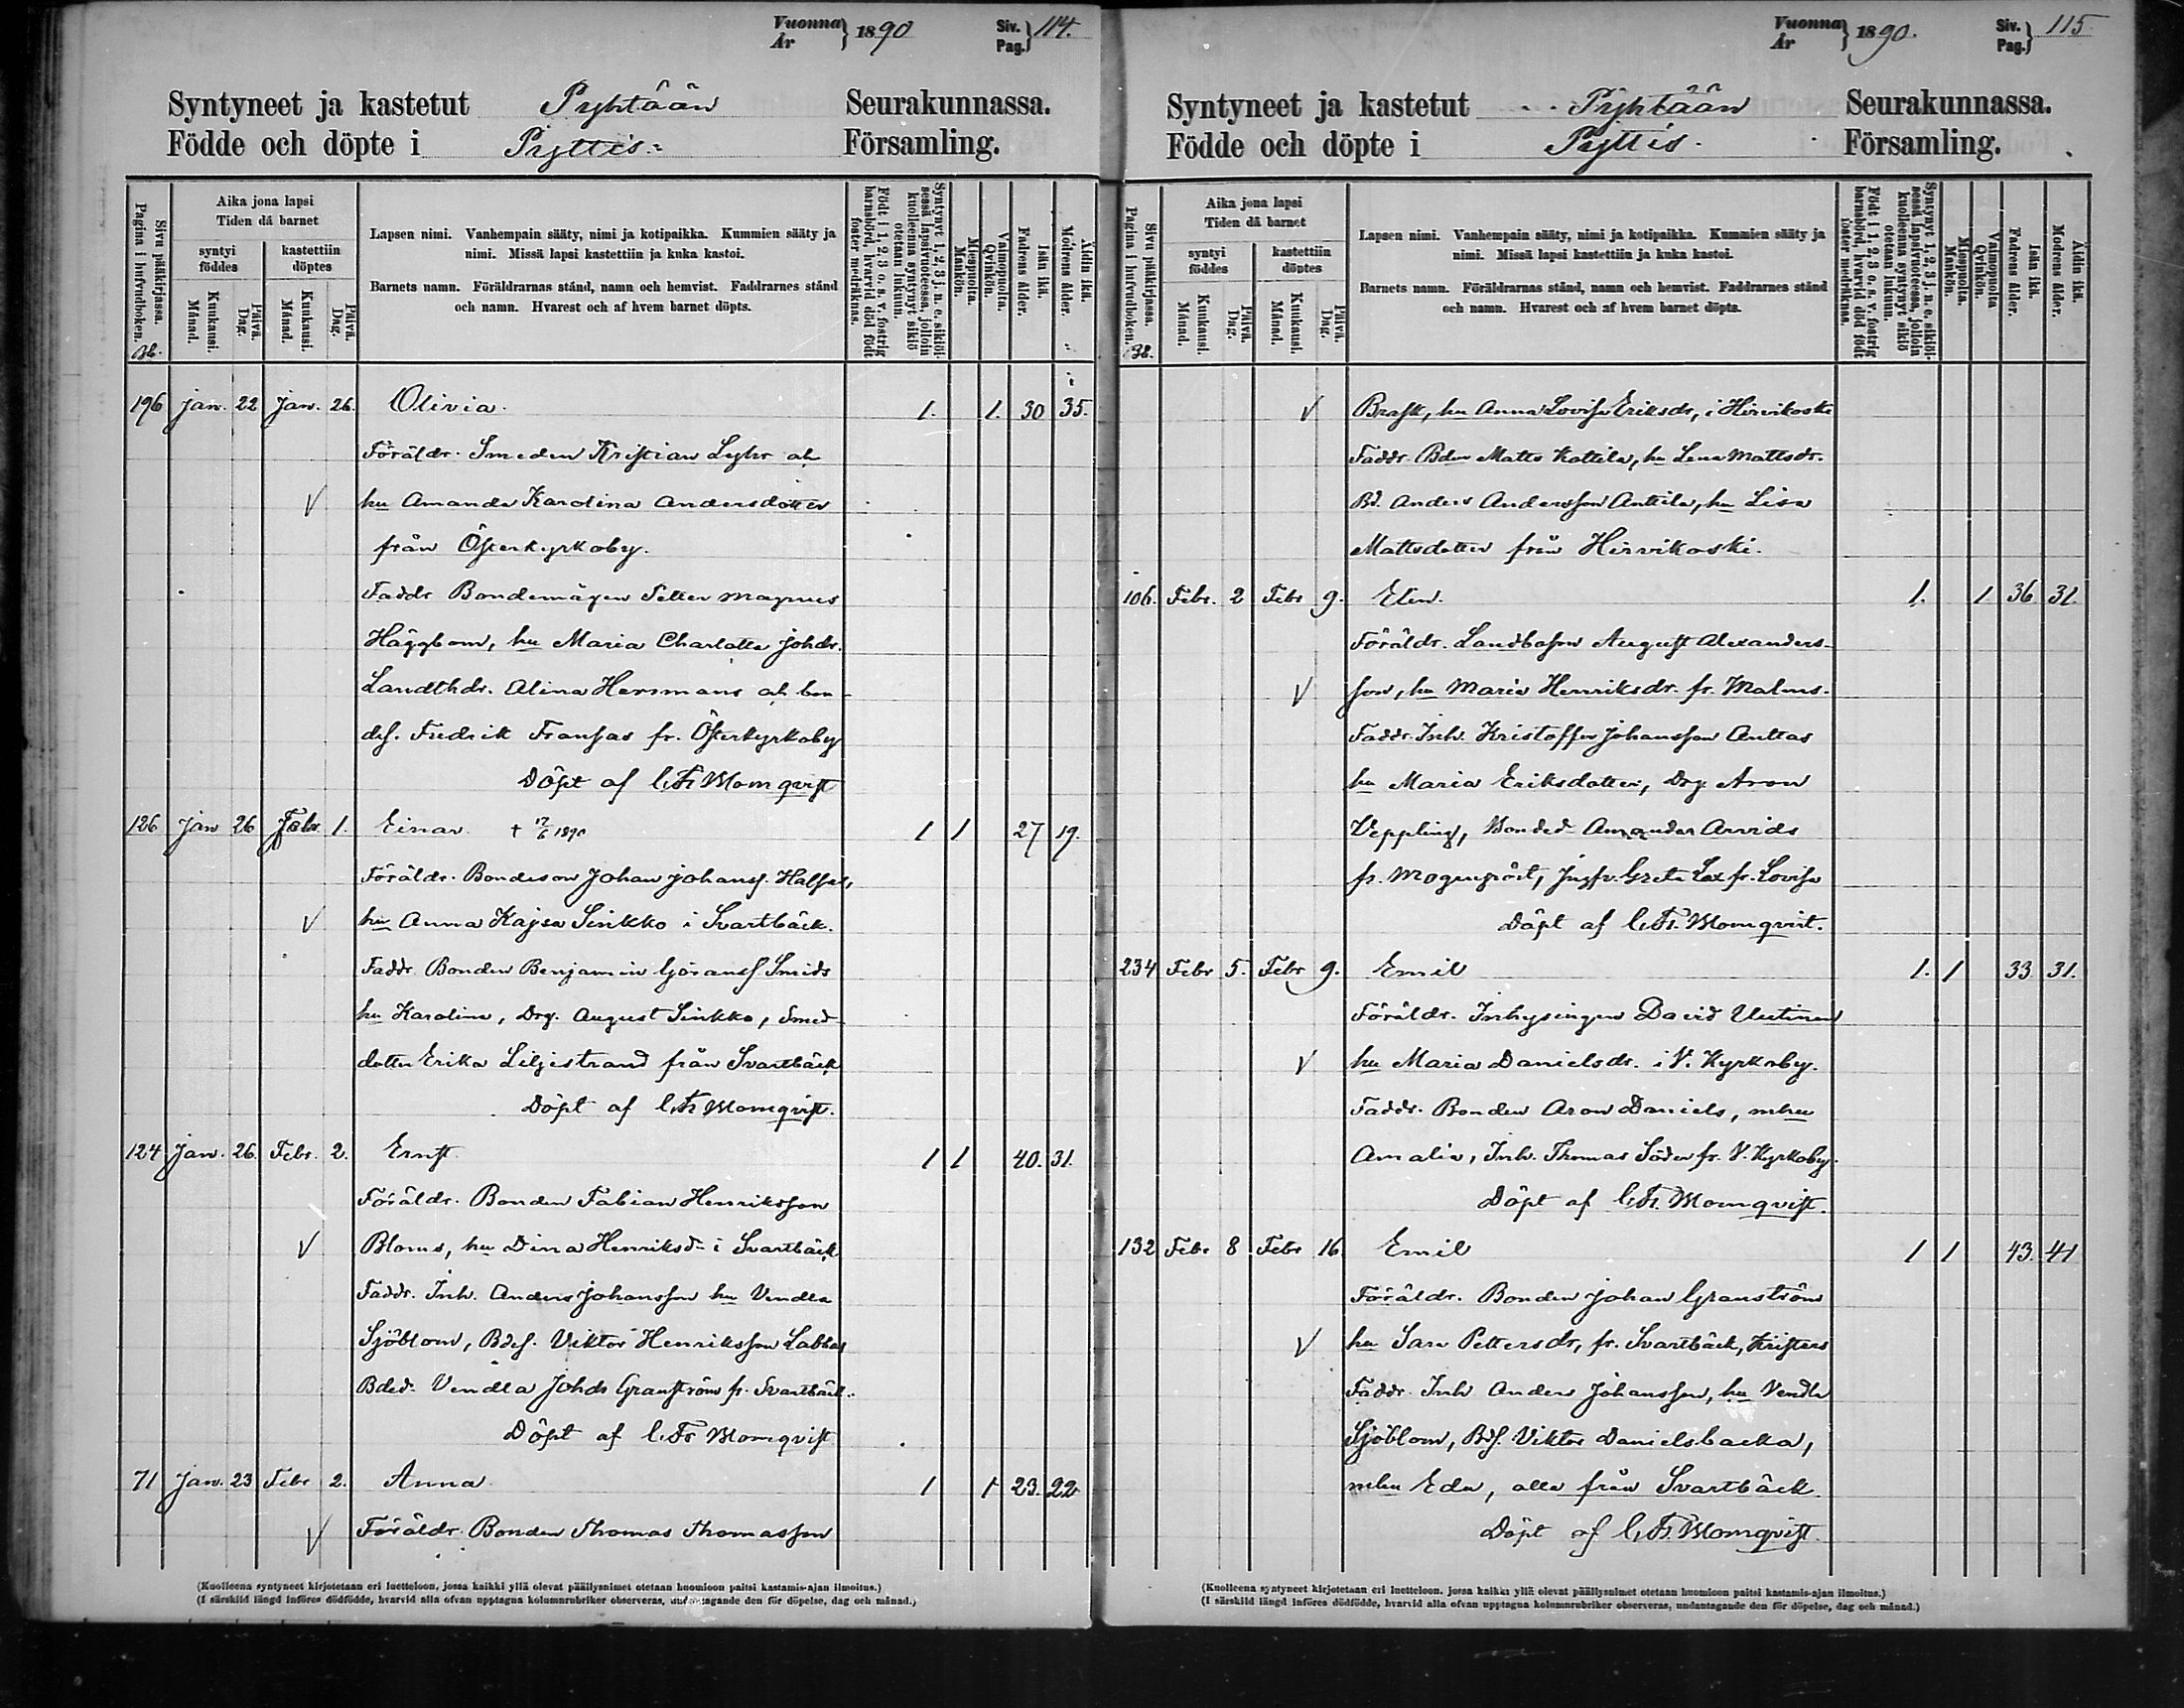 Vuonna År } 1890 Siv. Pag. } 114.
Syntyneet ja kastetut Pyhtään Seurakunnassa.
Födde och döpte i Pyttis Församling.
Sivu pääkirjassa. Pagina i hufvudboken.
Aika jona lapsi
Tiden då barnet
syntyi föddes
kastettiin döptes
Kuukausi. Månad.
Päivä. Dag.
Kuukausi. Månad.
Päivä. Dag.
Lapsen nimi. Vanhempain sääty, nimi ja kotipaikka. Kummien sääty ja
nimi. Missä lapsi kastettiin ja kuka kastoi.
Barnets namn. Föräldrarnas stånd, namn och hemvist. Faddrarnes stånd
och namn. Hvarest och af hvem barnet döpts.
Syntynyt 1, 2, 3 j. n. e. sikiöl-
sessä lapsivuoteessa, jolloin
kuolleena syntynyt sikiö
otetaan lukuun.
Född i 1, 2, 3 o. s. v. fostrig
barnsbörd, hvarvid död född
foster medräknas.
Miespuolta. Mankön.
Vaimopuolta. Qvinkön.
Isän ikä. Fadrens ålder.
Äidin ikä. Modrens ålder.
196 Jan. 22 Jan. 26. Olivia. 1. 1. 30 35.
Föräldr. Smeden Kristian Lyhr och
hu Amanda Karolina Andersdotter
från Österkyrkoby.
Faddr Bondemågen Petter Magnus
Häggbom, hu Maria Charlotta Johdr.
Landthdr. Alina Hermans och bon-
des. Fredrik Fransas fr. Österkyrkoby
Döpt af C. Fr. Blomqvist
126 Jan 26 Febr. 1. Einar. + 17/6 1890 1 1 27 19.
Föräldr. Bondeson Johan Johans. Halfvels,
hu Anna Kajsa Sinkko i Svartbäck.
Faddr. Bonden Benjamin Görans. Smids
hu Karolina, Drg. August Sinkko, Smed-
dotter Erika Liljestrand från Svartbäck
Döpt af C. Fr. Blomqvist.
124 Jan. 26. Febr. 2. Ernst 1 1 40. 31.
Föräldr. Bonden Fabian Henriksson
Bloms, hu Dina Henriksdr i Svartbäck
Faddr. Inh. Anders Johansson hu Vendla
Sjöblom, Bdes. Viktor Henriksson Labbas
Bded. Vendla Johdr Granström fr. Svartbäck.
Döpt af C. Fr Blomqvist
71 Jan. 23 Febr 2. Anna 1 1 23. 22
Föräldr. Bonden Thomas Thomasson
(Kuolleena syntyneet kirjotetaan eri luetteloon, jossa kaikki yllä olevat päällysnimet otetaan huomioon paitsi kastamis-ajan ilmoitus.)
(I särskild längd införes dödfödde, hvarvid alla ofvan upptagna kolumnrubriker observeras, undantagande den för döpelse, dag och månad.)
Vuonna År } 1890. Siv. Pag. } 115.
Syntyneet ja kastetut Pyhtään Seurakunnassa.
Födde och döpte i Pyttis. Församling.
Sivu pääkirjassa. Pagina i hufvudboken.
Aika jona lapsi
Tiden då barnet
syntyi föddes
kastettiin döptes
Kuukausi. Månad.
Päivä. Dag.
Kuukausi. Månad.
Päivä. Dag.
Lapsen nimi. Vanhempain sääty, nimi ja kotipaikka. Kummien sääty ja
nimi. Missä lapsi kastettiin ja kuka kastoi.
Barnets namn. Föräldrarnas stånd, namn och hemvist. Faddrarnes stånd
och namn. Hvarest och af hvem barnet döpts.
Syntynyt 1, 2, 3 j. n. e. sikiöl-
sessä lapsivuoteessa, jolloin
kuolleena syntynyt sikiö
otetaan lukuun.
Född i 1, 2, 3 o. s. v. fostrig
barnsbörd, hvarvid död född
foster medräknas.
Miespuolta. Mankön.
Vaimopuolta Qvinkön.
Isän ikä. Fadrens ålder.
Äidin ikä. Modrens ålder.
Brask, hu Anna Lovisa Eriksdr, i Hirvikoski
Faddr Bden Matts Kottila, hu Lena Mattsdr.
Bd. Anders Andersson Anttila, hu Lisa
Mattsdotter från Hirvikoski.
106. Febr. 2 Febr 9. Elin. 1. 1 36 31.
Föräldr. Landboson August Alexanders-
son, hu Maria Henriksdr. fr. Malms.
Faddr. Inh. Kristoffer Johansson Anttas
hu Maria Eriksdotter, Drg. Aron
Veppling, Bonded Amanda Arvids
fr. Mogenpört, Jngfr. Greta Lax fr. Lovisa
Döpt af C. Fr. Blomqvist.
234 Febr 5. Febr 9. Emil 1. 1 33 31.
Föräldr. Inhysingen David Uutinen
hu Maria Danielsdr. i V. Kyrkoby.
Faddr. Bonden Aron Daniels, mhu
Amalia, Inh. Thomas Söder fr. V. Kyrkoby.
Döpt af C. Fr. Blomqvist.
132 Febr 8 Febr 16 Emil 1 1 43. 41
Föräldr. Bonden Johan Granström
hu Sara Pettersdr, fr. Svartbäck, Kristers
Faddr. Inh Anders Johansson, hu Vendla
Sjöblom, Bds. Viktor Danielsbacka,
mhu Eda, alla från Svartbäck.
Döpt af C. Fr. Blomqvist.
(Kuolleena syntyneet kirjotetaan eri luetteloon, jossa kaikki yllä olevat päällysnimet otetaan huomioon paitsi kastamis-ajan ilmoitus.)
(I särskild längd införes dödfödde, hvarvid alla ofvan upptagna kolumnrubriker observeras, undantagande den för döpelse, dag och månad.)